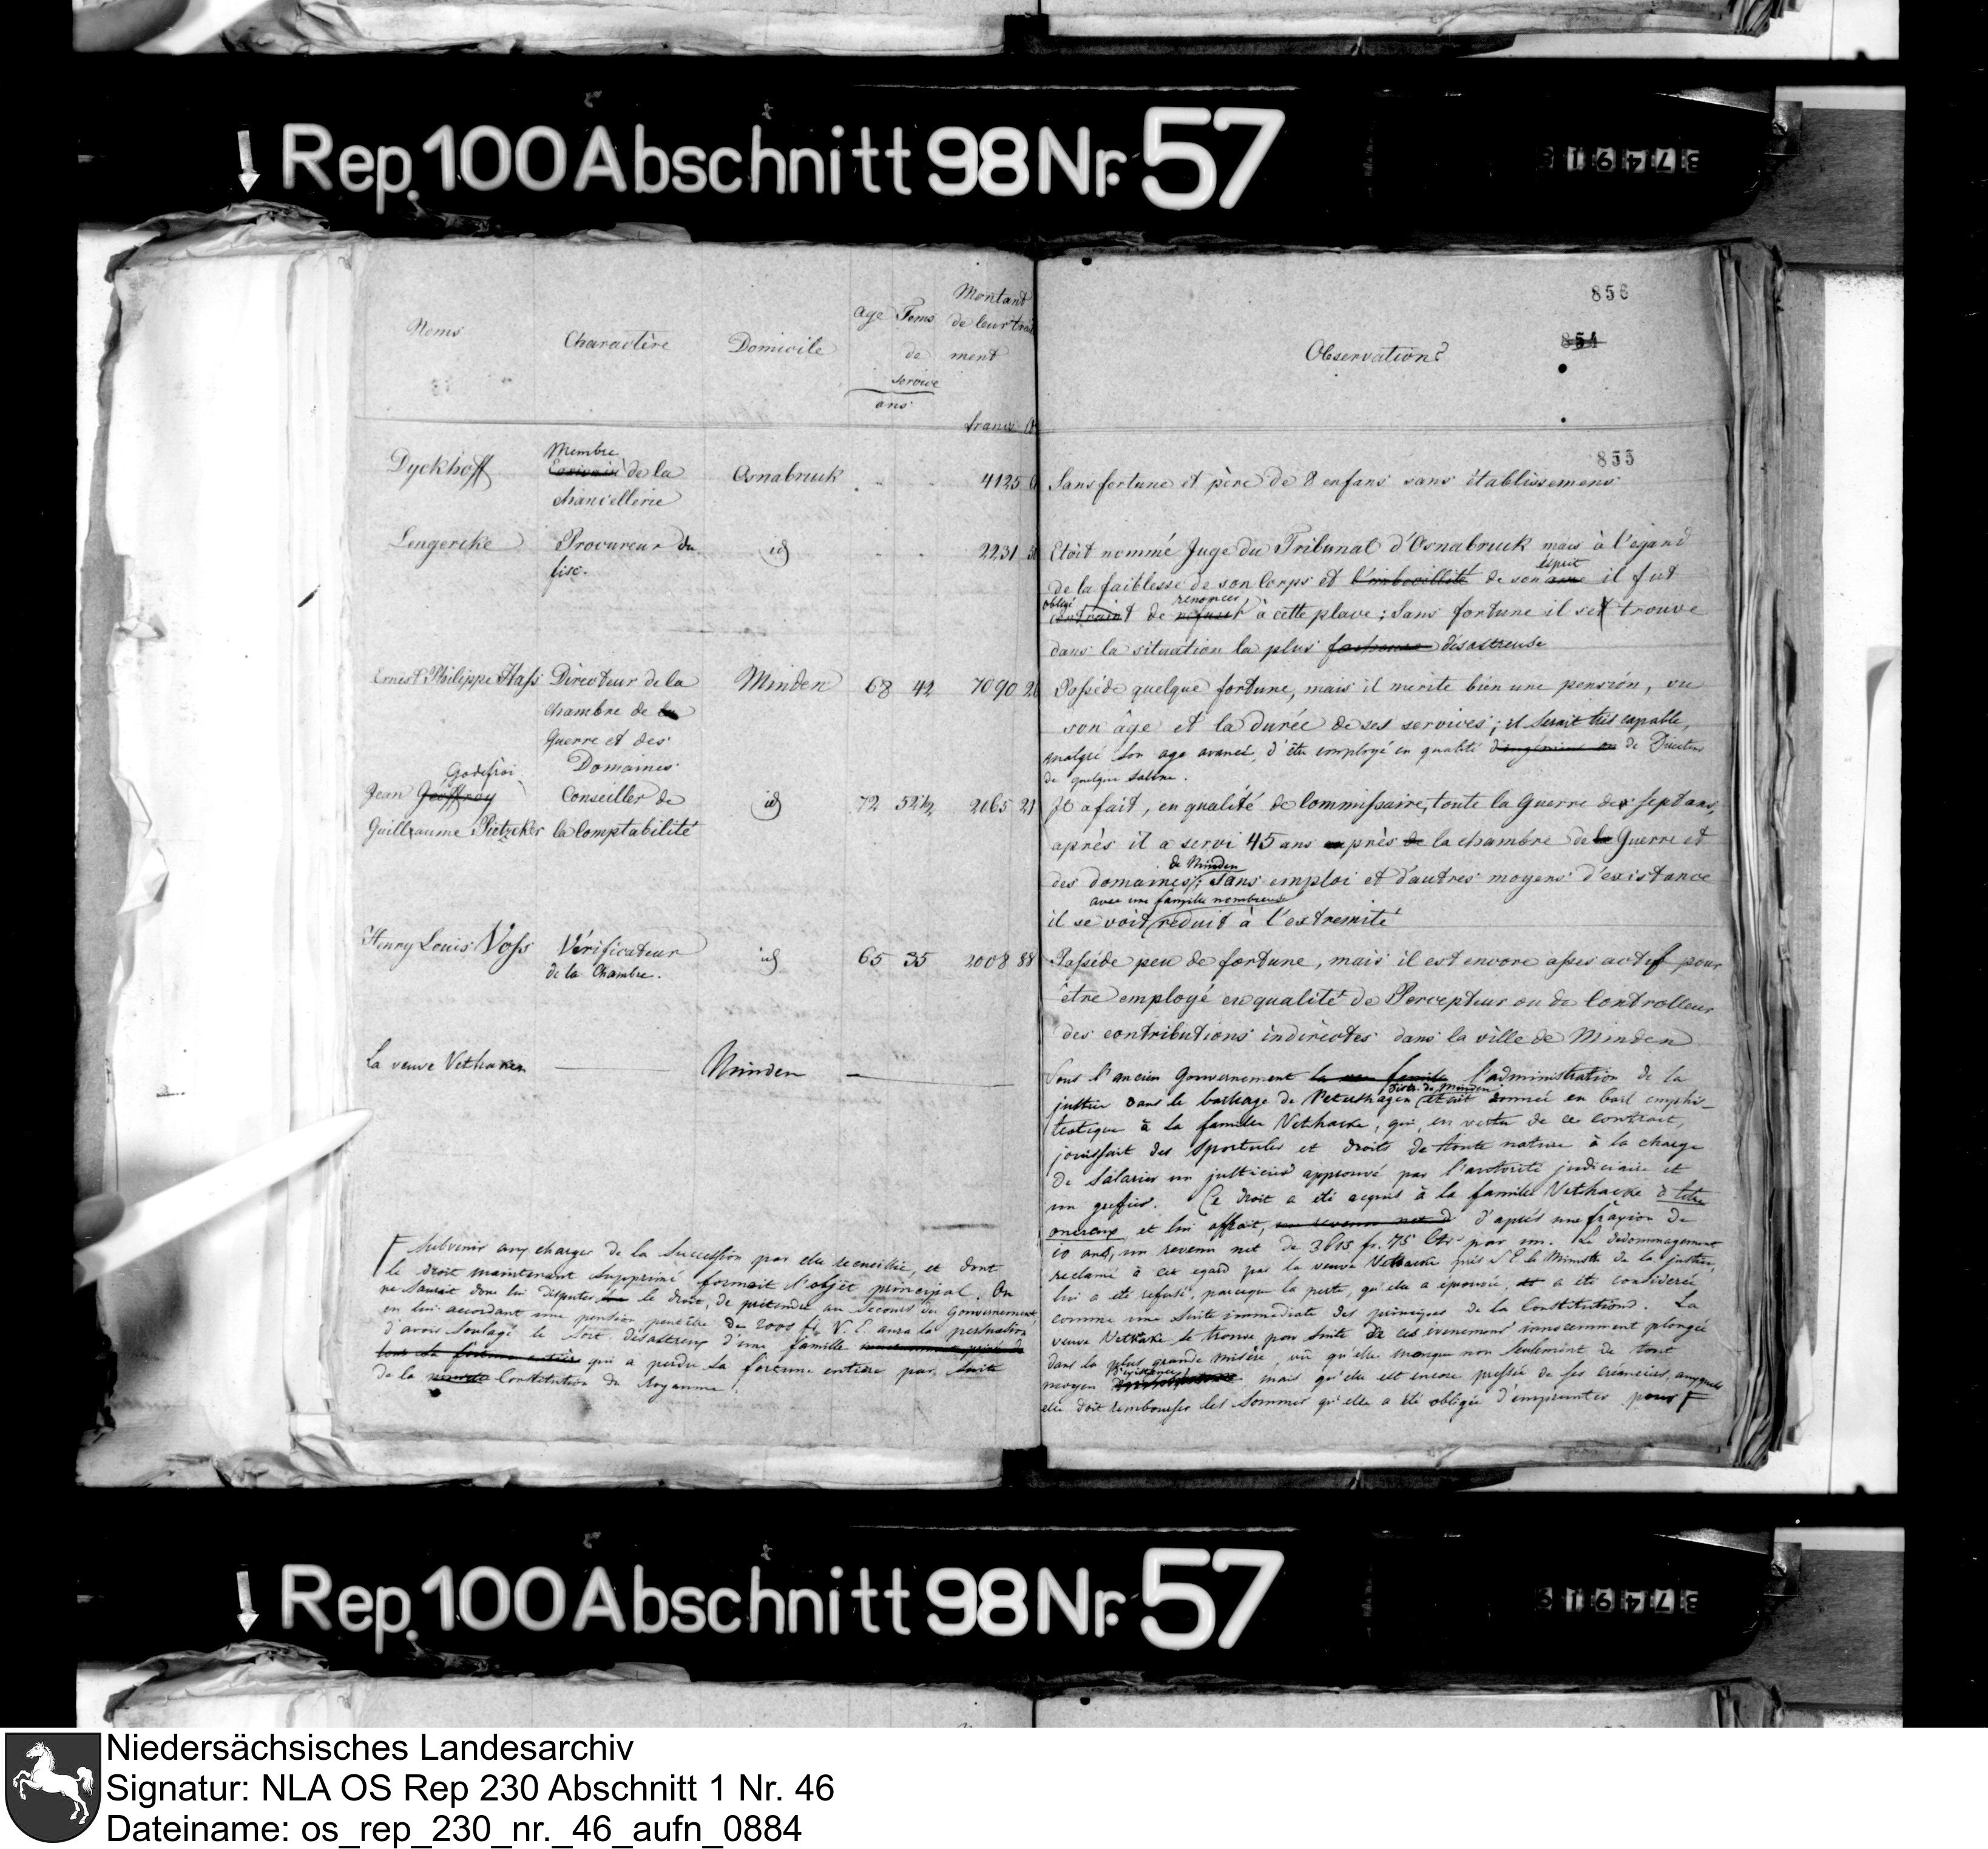 Rep. 100 Abschnitt 98 Nr. 57
856
854
Noms
Charactère
Domicile
age
Tems de service
ans
Montant de leur traitement
francs
Observations
855
Dyckhoff
Membre
Ecrivain de la
chancellerie
Osnabruck
4125
Sans fortune et père de 8 enfans sans établissemens
Lengercke
Procureur du
fisc.
id
2231
Etoit nommé Juge du Tribunal d'Osnabruck mais à l'égard
de la faiblesse de son Corps et l'imbecillité de son esprit il fut
obligé contraint de renoncer refuser à cette place; Sans fortune il se trouve
dans la situation la plus facheuse désastreuse
Ernest Philippe Hass
Directeur de la
chambre de la
Guerre et des
Domaines
Minden
68 42 7090
Possède quelque fortune, mais il merite bien une pension, vu
son âge et la durée de ses services; il serait très capable,
malgré son age avancé, d'être employé en qualité de Directeur
de quelque saline.
Godefroi
Jean Geoffroy
Guillaume Pietzcker
Conseiller de
la Comptabilité
id
72 52½ 2165 21
Il a fait, en qualité de Commissaire, toute la Guerre de sept ans,
après il a servi 45 ans auprès de la chambre de la Guerre et
de Minden
des domaines; Sans emploi et d'autres moyens d'existance
avec une famille nombreuse
il se voit reduit à l'extremité
Henry Louis Voss
Vérificateur
de la Chambre.
id
65 35 2008 88
Possède peu de fortune, mais il est encore asses actif pour
être employé en qualité de Percepteur ou de Controlleur
des contributions indirectes dans la ville de Minden
La veuve Vethacke
Minden
Sous l'ancien Gouvernement l'administration de la
distr. de Minden
justice dans le bailliage de Petershagen était donnée en bail emphi-
teotique à la famille Vethacke, qui, en vertu de ce contract,
jouissait des Sportules et droits de toute nature à la charge
de salarier un justicier approuvé par l'autorité judiciaire et
un greffier. Ce droit a été acquis à la famille Vethacke à titre
onereux et lui offrait, d'après une fraxion de
10 ans, un revenu net de 3615 fr. 75 Cts par an. Le dedommagement
reclamé à cet egard par la veuve Vethacke près S. E. le Ministre de la justice,
lui a été refusé, parceque la perte, qu'elle a éprouvée, a été considerée
comme une suite immediate des principes de la Constitution. La
veuve Vethacke se trouve par suite de ces évenemens plongée
dans la plus grande misère, vu qu'elle manque non seulement de tout
moyen d'existence, mais qu'elle est encore pressée de ses créanciers, auxquels
elle doit rembourser les sommes qu'elle a été obligée d'emprunter pour F
F subvenir aux charges de la succession par elle recueillie, et dont
le droit maintenant supprimé formait l'objet principal. On
ne saurait donc lui disputer le droit, de prétendre au secours du Gouvernement,
en lui accordant une pension peutêtre de 2000 fr. V. E. aura la persuasion
d'avoir soulagé le sort désastreux d'une famille
qui a perdu sa fortune entière par suite
de la Constitution du Royaume.
Rep. 100 Abschnitt 98 Nr. 57
Niedersächsisches Landesarchiv
Signatur: NLA OS Rep 230 Abschnitt 1 Nr. 46
Dateiname: os_rep_230_nr._46_aufn_0884